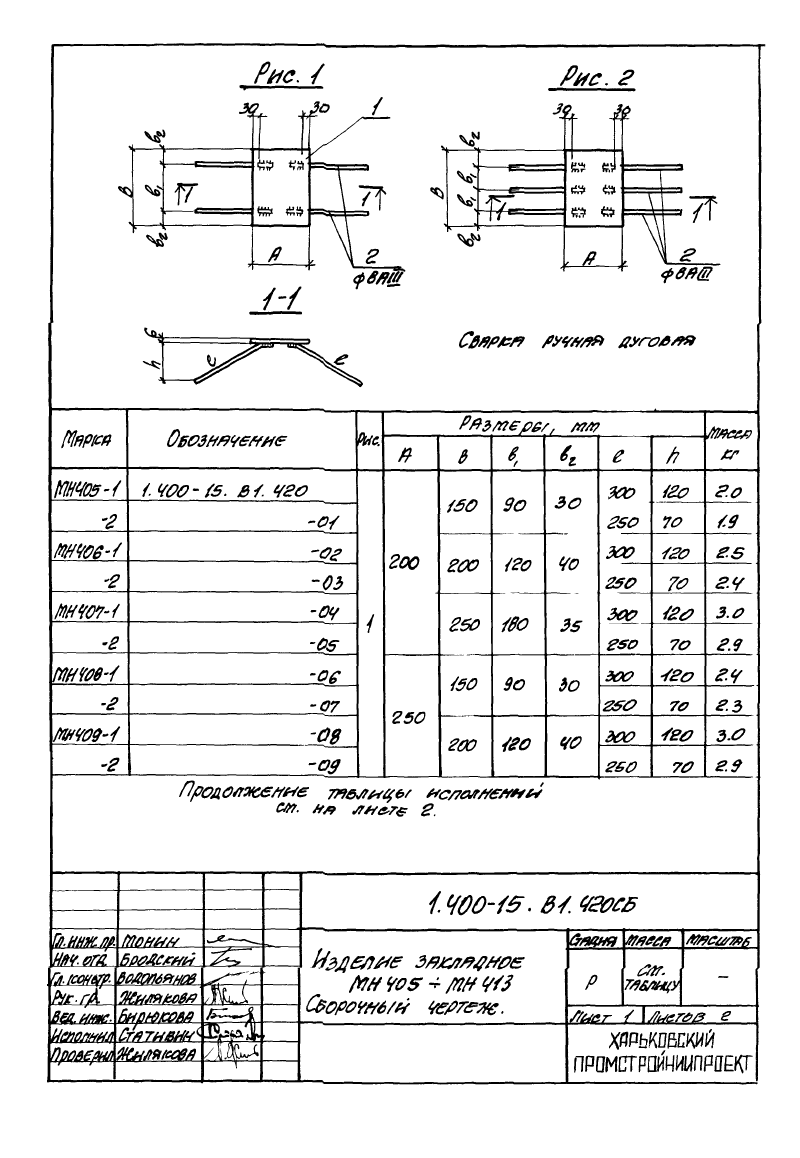 Рис. 1
Рис. 2
30 30 1
30 30
в2 в1 в2 В
в2 в1 в1 в2 В
1 1
1 1
А
А
2
ф8АIII
2
ф8АIII
1-1
6
h
ℓ ℓ
Сварка ручная дуговая
Марка Обозначение Рис. Размеры, мм Масса кг
А В в1 в2 ℓ h
МН405-1 1.400-15. В1. 420 1 200 150 90 30 300 120 2.0
-2 -01 250 70 1.9
МН406-1 -02 200 120 40 300 120 2.5
-2 -03 250 70 2.4
МН407-1 -04 250 180 35 300 120 3.0
-2 -05 250 70 2.9
МН408-1 -06 250 150 90 30 300 120 2.4
-2 -07 250 70 2.3
МН409-1 -08 200 120 40 300 120 3.0
-2 -09 250 70 2.9
Продолжение таблицы исполнений
см. на листе 2.
1.400-15. В1. 420СБ
Гл. инж. пр. Монин
Нач. отд. Бродский
Гл. констр. Водопьянов
Рук. гр. Жилякова
Вед. инж. Бирюкова
Исполнил Статывич
Проверил Жилякова
Изделие закладное
МН 405 ÷ МН 413
Сборочный чертеж.
Стадия Масса Масштаб
Р см. таблицу —
Лист 1 Листов 2
ХАРЬКОВСКИЙ
ПРОМСТРОЙНИИПРОЕКТ